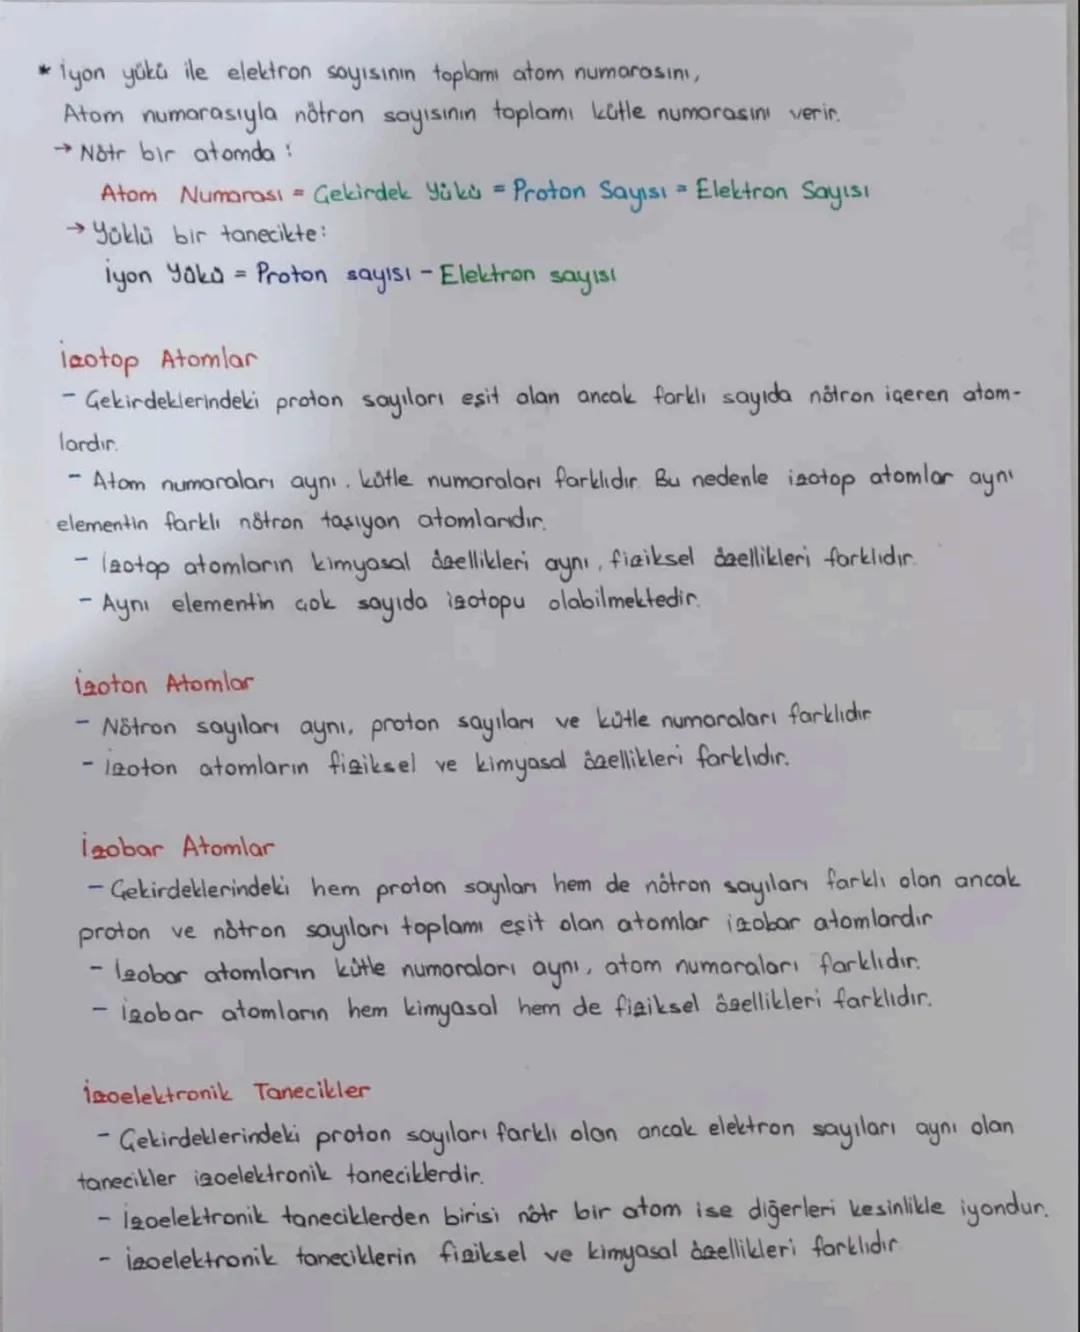 * İyon yükü ile elektron sayısının toplamı atom numarasını,
Atom numarasıyla nötron sayısının toplamı kütle numarasını verir.
→ Nötr bir atomda :
Atom Numarası = Çekirdek Yükü = Proton Sayısı = Elektron Sayısı
→ Yüklü bir tanecikte:
İyon Yükü = Proton sayısı - Elektron sayısı
İzotop Atomlar
- Çekirdeklerindeki proton sayıları eşit olan ancak farklı sayıda nötron içeren atom-
lardır.
- Atom numaraları aynı, kütle numaraları farklıdır. Bu nedenle izotop atomlar aynı
elementin farklı nötron taşıyan atomlarıdır.
- İzotop atomların kimyasal özellikleri aynı, fiziksel özellikleri farklıdır.
- Aynı elementin çok sayıda izotopu olabilmektedir.
İzoton Atomlar
- Nötron sayıları aynı, proton sayıları ve kütle numaraları farklıdır
- İzoton atomların fiziksel ve kimyasal özellikleri farklıdır.
İzobar Atomlar
- Çekirdeklerindeki hem proton sayıları hem de nötron sayıları farklı olan ancak
proton ve nötron sayıları toplamı eşit olan atomlar izobar atomlardır
- İzobar atomların kütle numaraları aynı, atom numaraları farklıdır.
- İzobar atomların hem kimyasal hem de fiziksel özellikleri farklıdır.
İzoelektronik Tanecikler
- Çekirdeklerindeki proton sayıları farklı olan ancak elektron sayıları aynı olan
tanecikler izoelektronik taneciklerdir.
- İzoelektronik taneciklerden birisi nötr bir atom ise diğerleri kesinlikle iyondur.
- İzoelektronik taneciklerin fiziksel ve kimyasal özellikleri farklıdır.